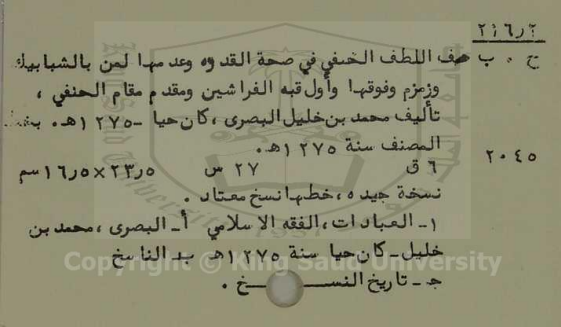 ٢١٦٫٢
ح ٠ ب حف اللطف الخفي في صحة القدوه وعدمها لمن بالشبابيك
وزمزم وفوقها وأول قبه الفراشين ومقدم مقام الحنفي ،
تأليف محمد بن خليل البصرى ، كان حيا - ١٢٧٥هـ. بخط
المصنف سنة ١٢٧٥هـ.
٢٠٤٥
٦ ق ٢٧ س ٢٣٫٥×١٦٫٥ سم
نسخة جيده ، خطها نسخ معتاد .
١- العبادات ، الفقه الاسلامي أ- البصرى ، محمد بن
خليل - كان حيا سنة ١٢٧٥هـ ب- الناسخ
جـ - تاريخ النسـخ .
Copyright © King Saud University